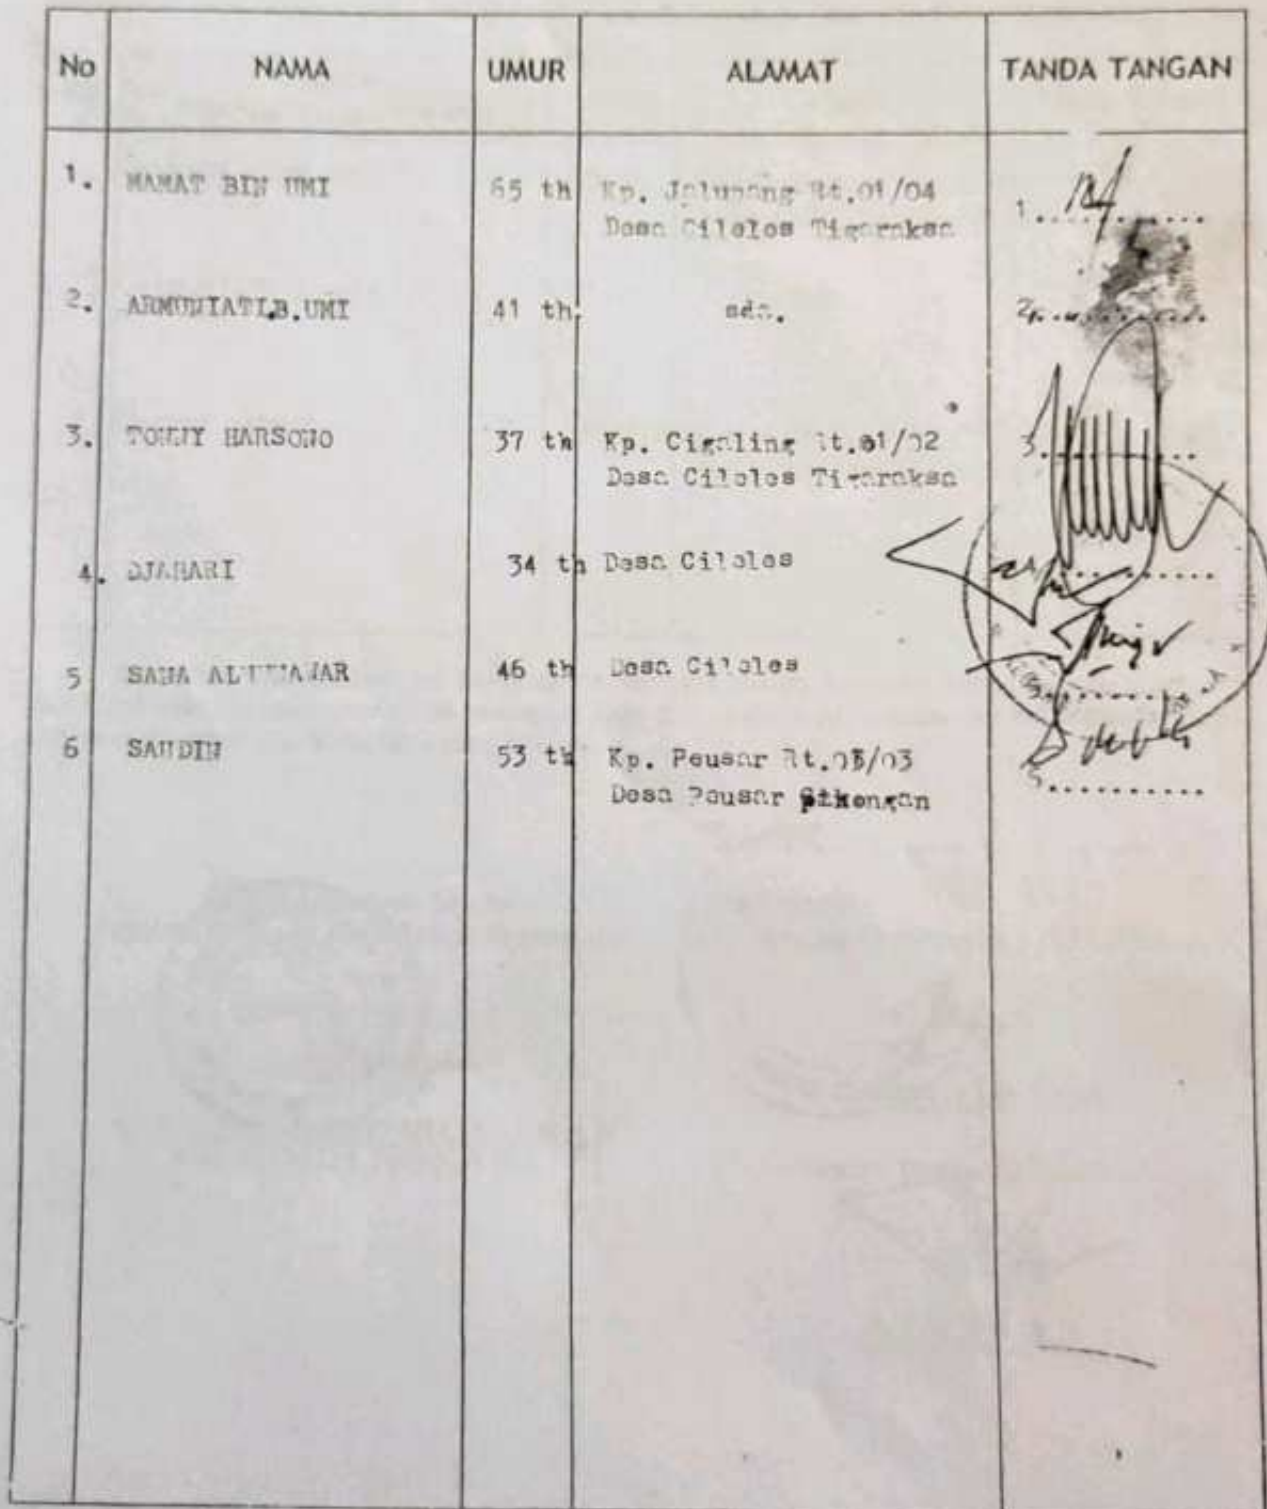 No NAMA UMUR ALAMAT TANDA TANGAN
1. MAMAT BIN UMI 65 th Kp. Jalupang Rt.01/04 1..........
Desa Cileles Tigaraksa
2. ARMUNIATI.B.UMI 41 th. sda. 2..........
3. TONNY HARSONO 37 th Kp. Cigaling Rt.01/02 3..........
Desa Cileles Tigaraksa
4. DJAHARI 34 th Desa Cileles
5 46 th Desa Cileles
6 SAUDIN 53 th Kp. Peusar /03
Desa Peusar